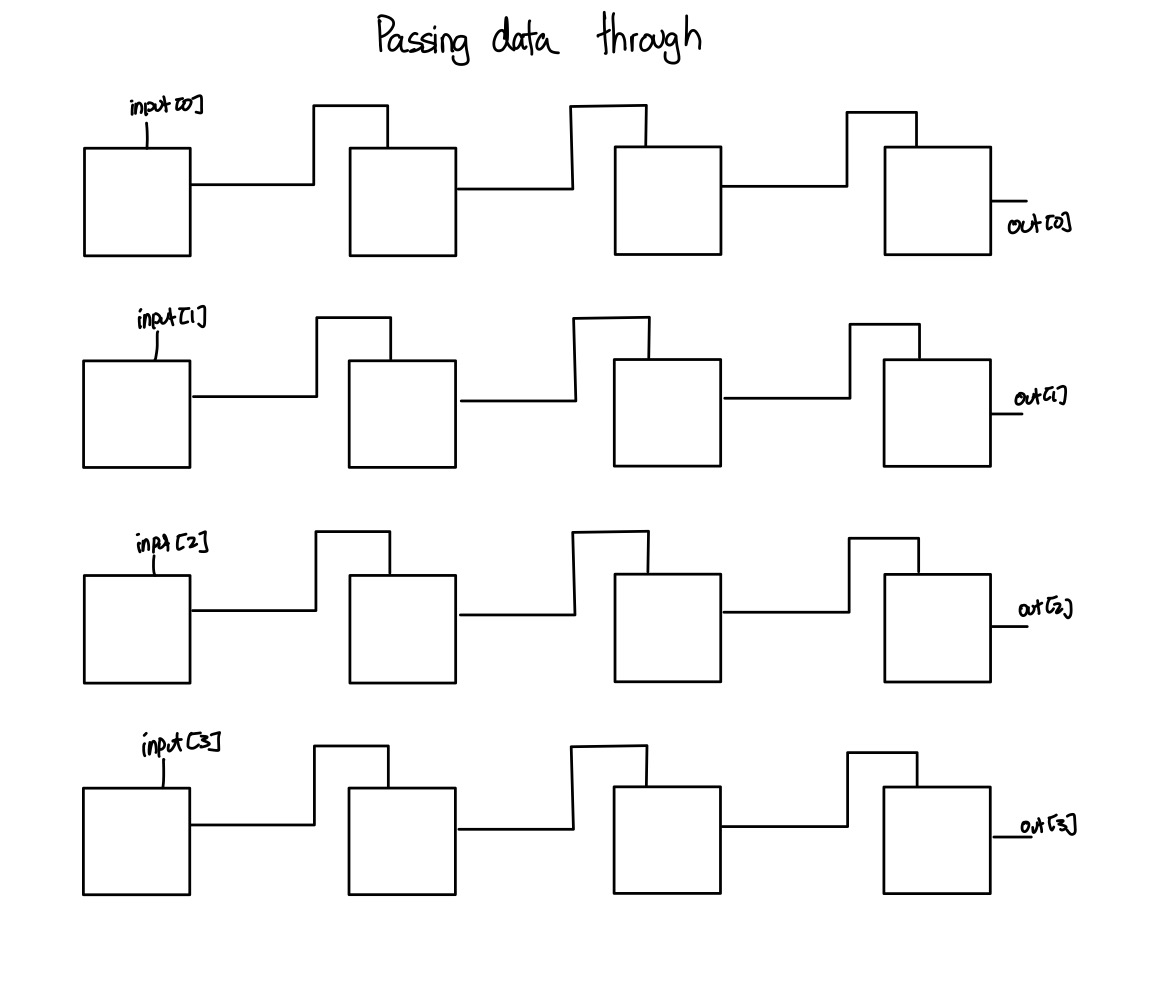 Passing data through
input[0]
out[0]
input[1]
out[1]
input[2]
out[2]
input[3]
out[3]